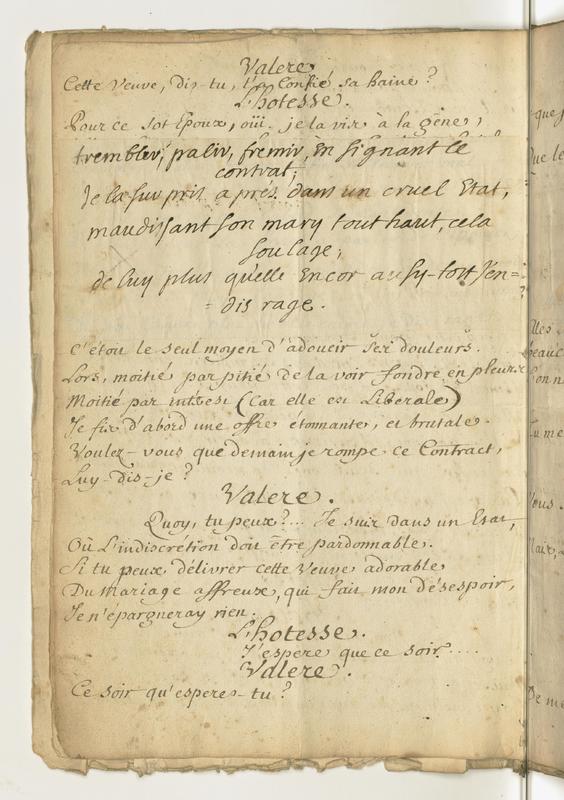 Valere.
Cette Veuve, dis-tu, t'a Confié sa haine?
L'hotesse.
Pour ce sot Epoux, oüi. je la vis à la gêne,
trembler, palir, fremir, en signant le
contrat;
Je la surpris apres dans un cruel Etat,
maudissant son mary tout haut, cela
soulage;
de luy plus qu'elle encor aussy-tost j'en=
=dis rage.
C'étoit le seul moyen d'adoucir ses douleurs.
Lors, moitié par pitié de la voir fondre en pleurs
Moitié par interest (Car elle est Liberale)
Je fis d'abord une offre étonnante, et brutale.
Voulez-vous que demain je rompe ce Contract,
Luy-dis-je?
Valere.
Quoy, tu peux?... Je suis dans un Etat,
Où L'indiscrétion doit être pardonnable.
Si tu peux délivrer cette Veuve adorable
Du Mariage affreux, qui fait mon désespoir,
Je n'épargneray rien.
L'hotesse.
J'espere que ce soir....
Valere.
Ce soir qu'esperes-tu?